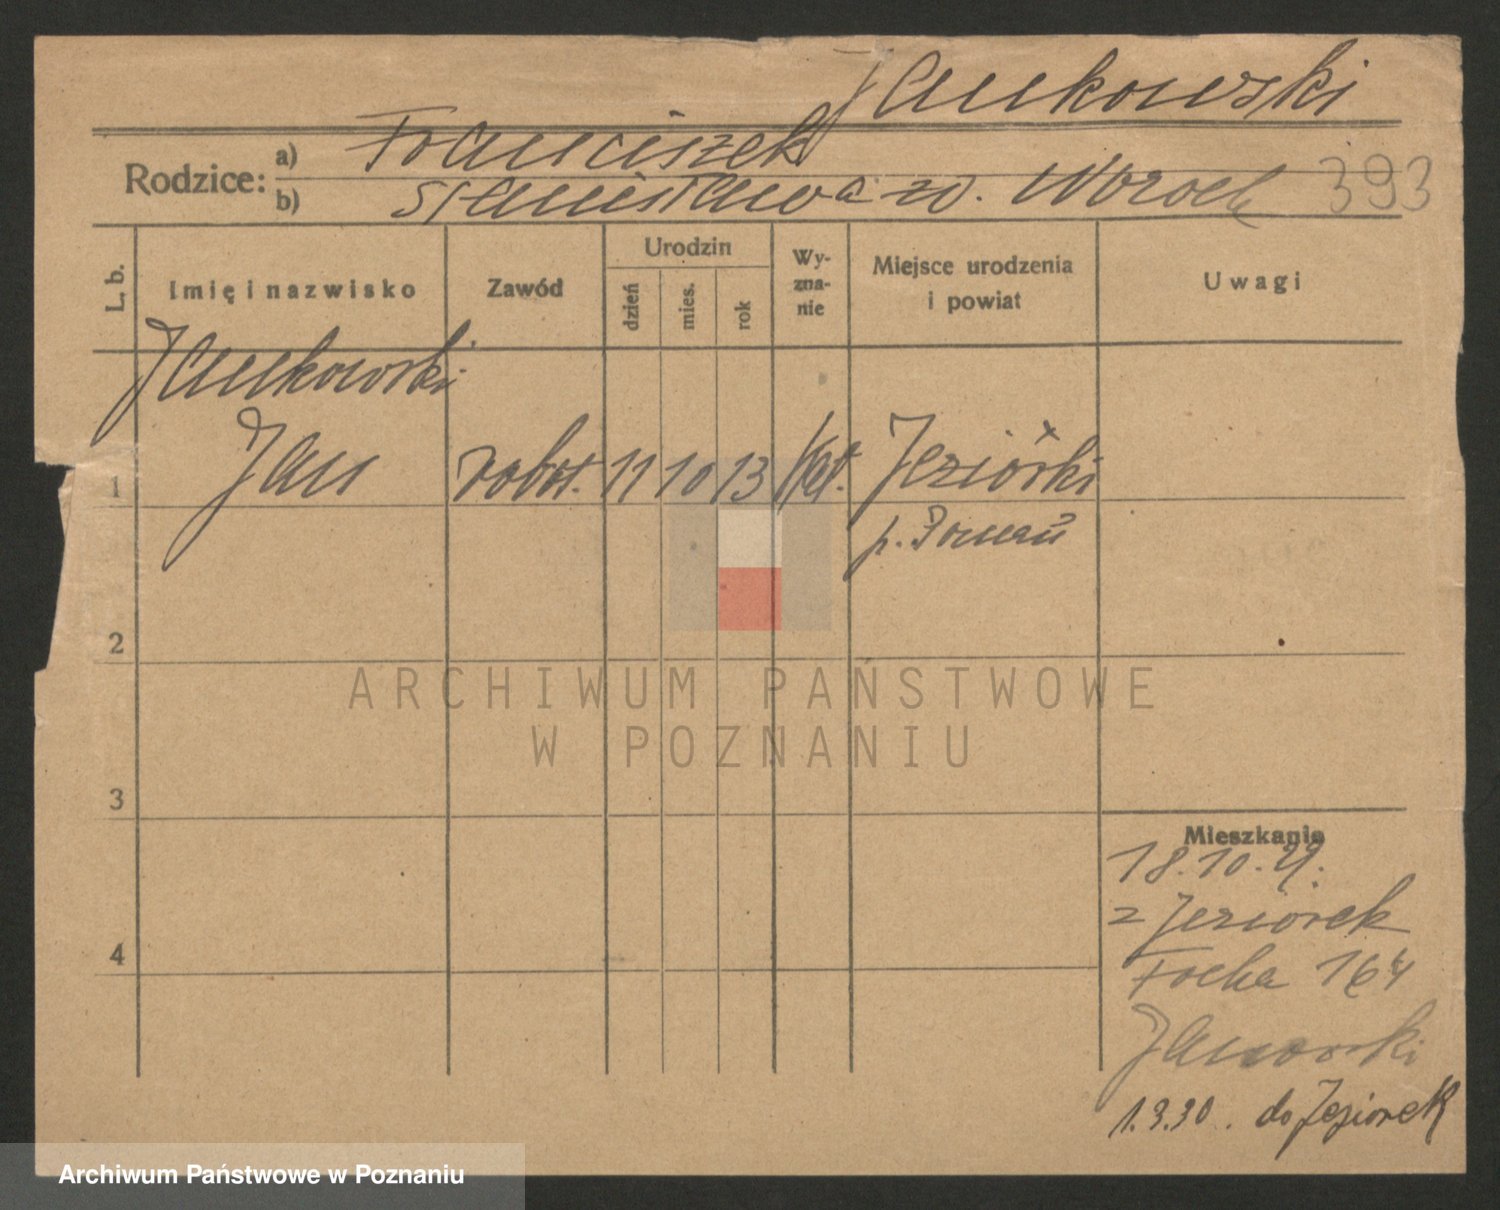 Jankowski
Rodzice:
a) Franciszek
b) Stanisława zd. Woroch
393
L. b.
Imię i nazwisko
Zawód
Urodzin
dzień
mies.
rok
Wy-
zna-
nie
Miejsce urodzenia
i powiat
Uwagi
Jankowski
1 Jan robot. 11 10 13 kat. Jeziórki
p. Poznań
2
3
4
Mieszkanie
18.10.29.
z Jeziorek
Focha 164
Jaworski
1.3.30. do Jeziorek
ARCHIWUM PAŃSTWOWE
W POZNANIU
Archiwum Państwowe w Poznaniu